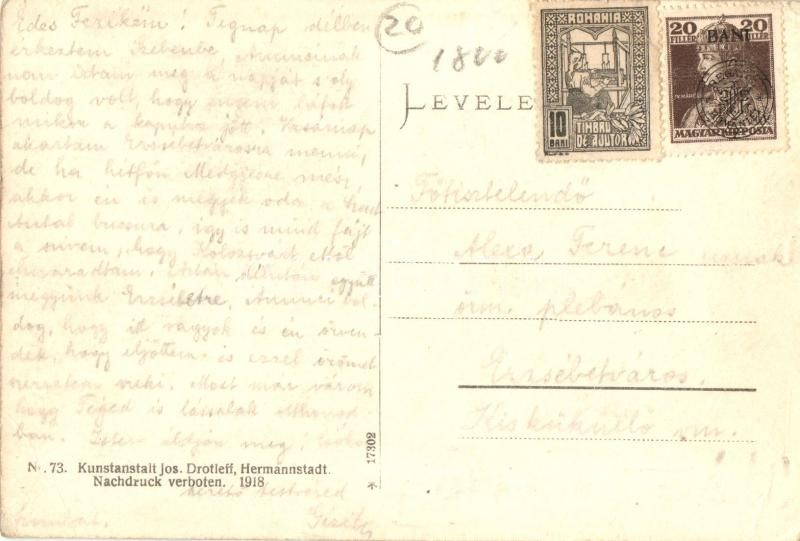 Édes Ferikém! Tegnap délben
érkeztem Szebenbe, Anninak
nem írtam meg a napját s oly
boldog volt, hogy
mikor a kapuba jött. Vasárnap
akartam Erzsébetvárosra menni,
de ha hétfőn Medgyesre mész,
akkor én is megyek oda a Szent
Antal búcsura, így is mind fájt
a szivem, hogy Kolozsvárt
elmaradtam. Aztán délután együtt
megyünk Erzsébetre, Annuci bol-
dog, hogy itt vagyok és én örven-
dek, hogy eljöttem és ezzel örömet
szereztem neki. Most már várom
hogy Téged is lássalak otthonod-
ban. Isten áldjon meg!
szerető testvéred
Gizella
No. 73. Kunstanstalt Jos. Drotleff, Hermannstadt.
Nachdruck verboten. 1918
17302
20
1800
LEVELE
ROMANIA
10
BANI
TIMBRU
DE AJUTOR
20 FILLÉR
BANI
20 FILLÉR
MAGYAR KIR. POSTA
Főtisztelendő
Alexa Ferenc urnak
örm. plébános
Erzsébetváros.
Kisküküllő vm.